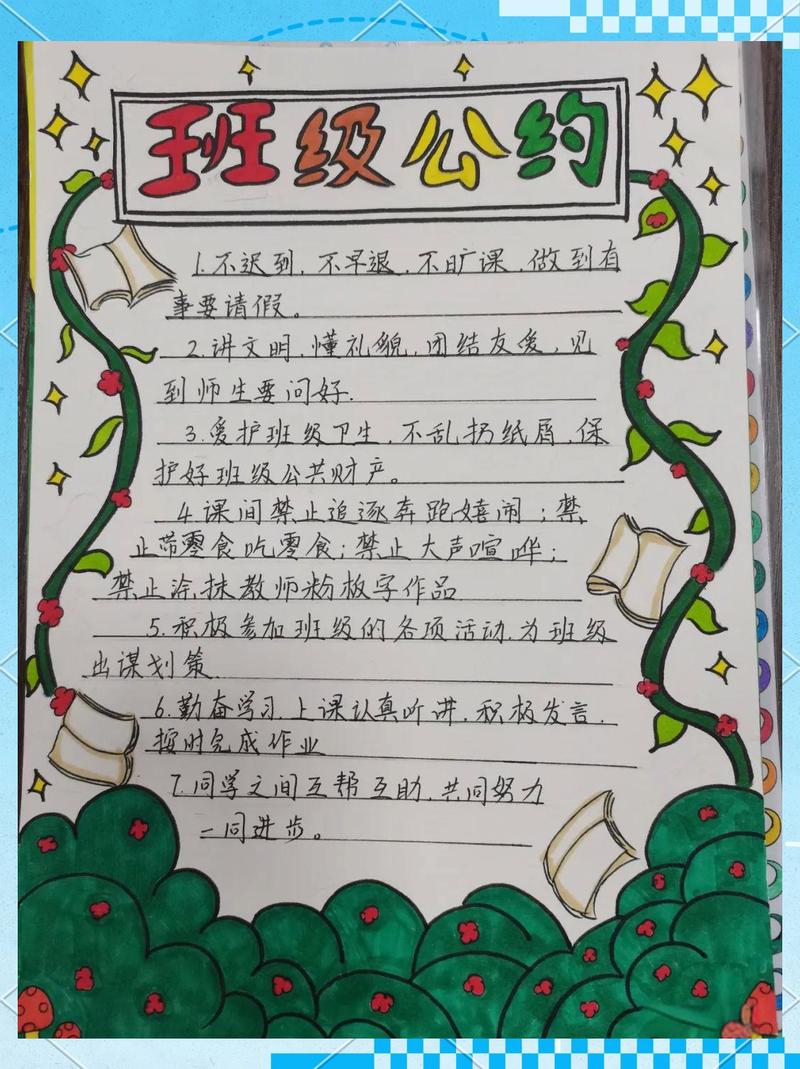 班级公约
1.不迟到,不早退,不旷课,做到有
事要请假。
2.讲文明,懂礼貌,团结友爱,见
到师生要问好.
3.爱护班级卫生,不乱扔纸屑,保
护好班级公共财产。
4.课间禁止追逐奔跑嬉闹;禁
止带零食吃零食;禁止大声喧哗;
禁止涂抹教师粉板字作品
5.积极参加班级的各项活动.为班级
出谋划策.
6.勤奋学习.上课认真听讲,积极发言.
按时完成作业
7.同学之间互帮互助.共同努力
一同进步。